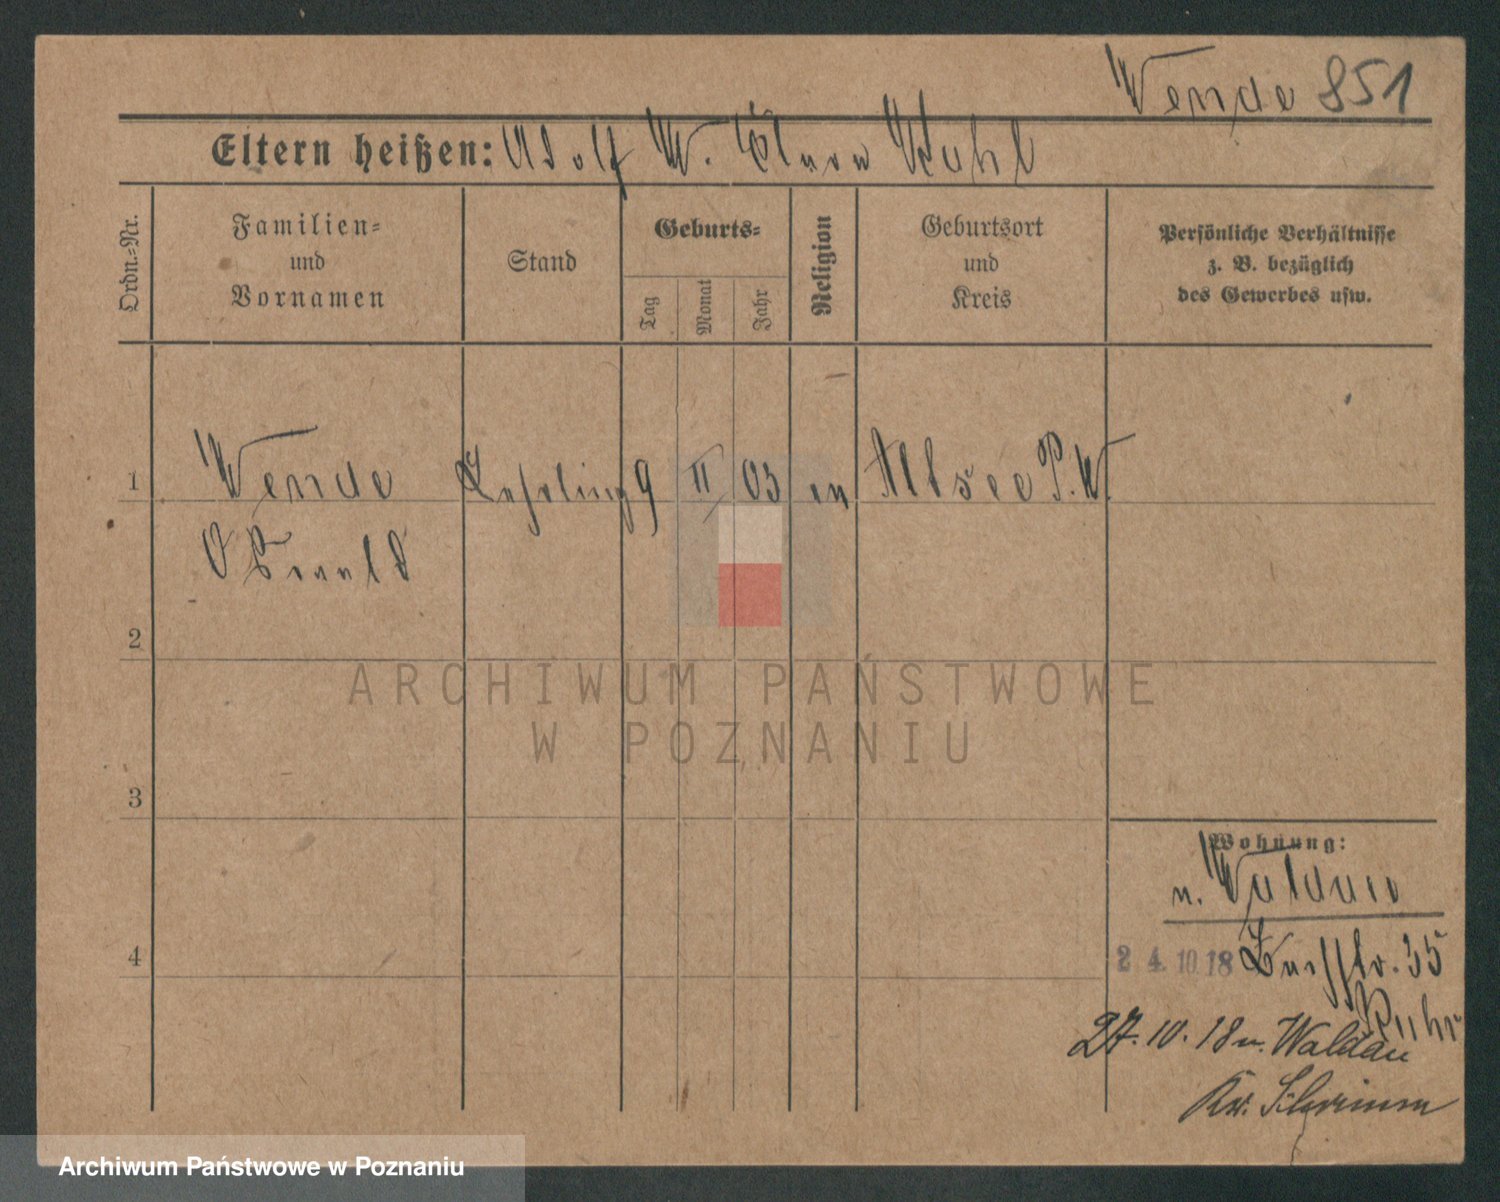 Wende 851
Eltern heißen: Adolf W.
Ordn.=Nr.
Familien=
und
Vornamen
Stand
Geburts=
Tag
Monat
Jahr
Religion
Geburtsort
und
Kreis
Persönliche Verhältnisse
z. B. bezüglich
des Gewerbes usw.
1 Wende Lehrling 9 II 03 ev Altsee P.W.
Oswald
2
3
4
ARCHIWUM PAŃSTWOWE
W POZNANIU
Wohnung:
n. Waldau
24.10.18 35
27.10.18 n. Waldau
Kr. Schrimm
Archiwum Państwowe w Poznaniu